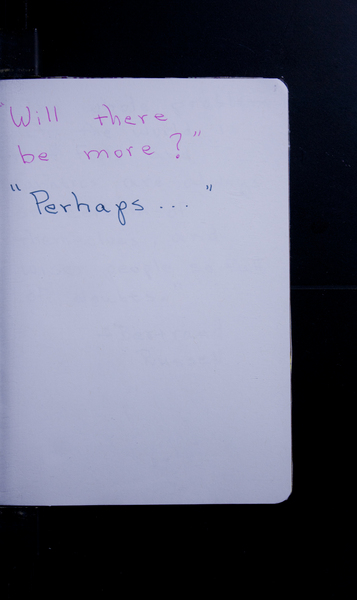 "Will there
be more?"
"Perhaps..."